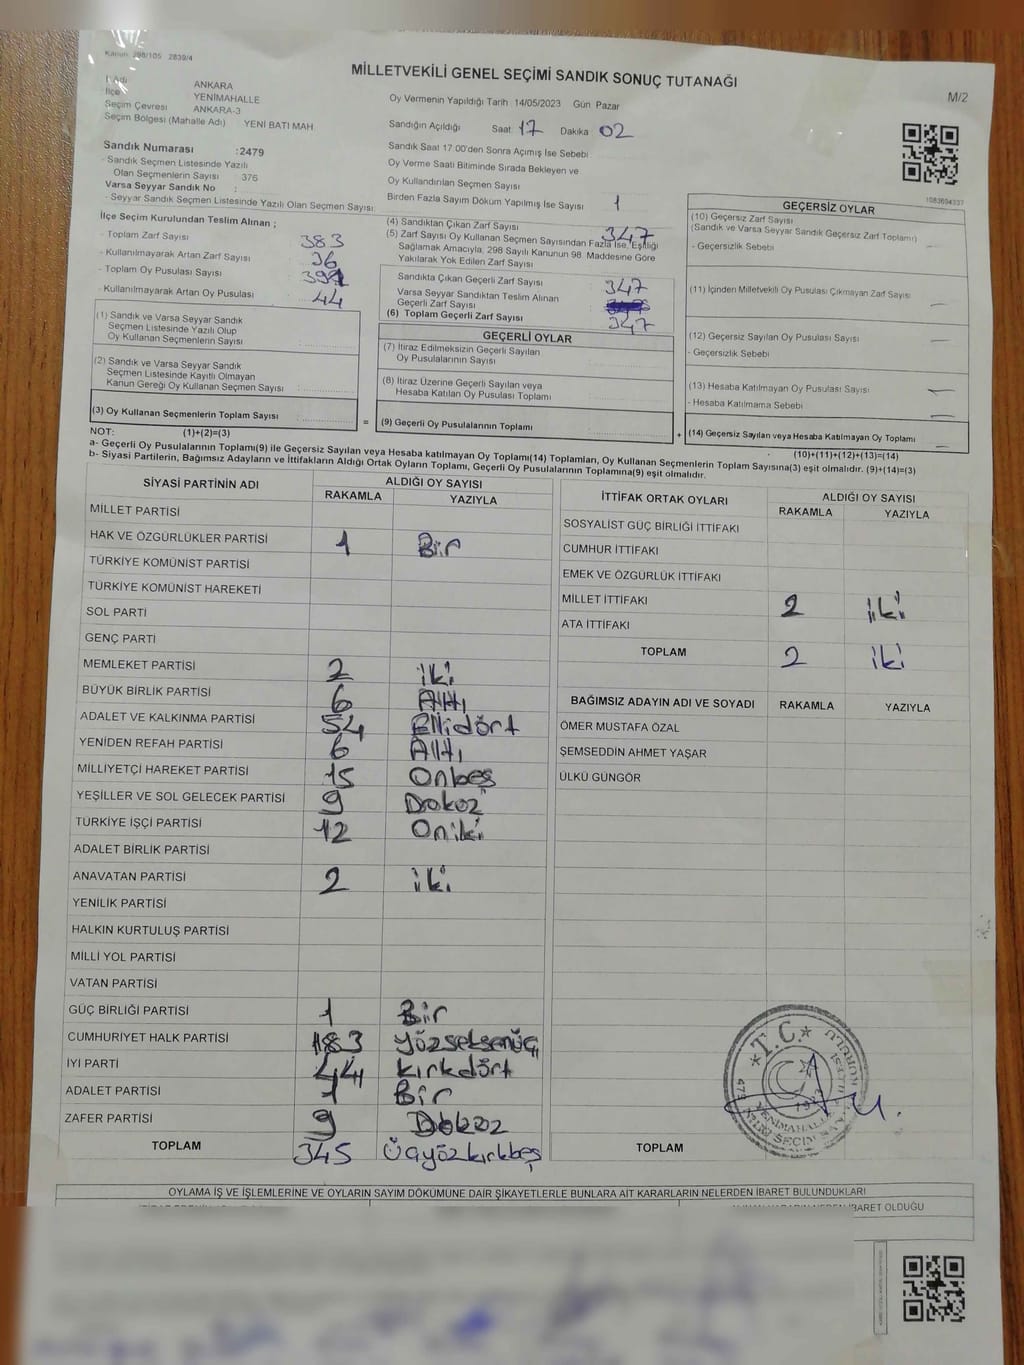 Kanun 298/105 2839/4
MİLLETVEKİLİ GENEL SEÇİMİ SANDIK SONUÇ TUTANAĞI
M/2
İl Adı ANKARA
İlçe YENİMAHALLE
Seçim Çevresi ANKARA-3
Seçim Bölgesi (Mahalle Adı) YENİ BATI MAH
Oy Vermenin Yapıldığı Tarih 14/05/2023 Gün Pazar
Sandığın Açıldığı Saat 17 Dakika 02
Sandık Numarası :2479
- Sandık Seçmen Listesinde Yazılı
Olan Seçmenlerin Sayısı 376
Varsa Seyyar Sandık No :
- Seyyar Sandık Seçmen Listesinde Yazılı Olan Seçmen Sayısı
Sandık Saat 17.00'den Sonra Açılmış İse Sebebi
Oy Verme Saati Bitiminde Sırada Bekleyen ve
Oy Kullandırılan Seçmen Sayısı
Birden Fazla Sayım Döküm Yapılmış İse Sayısı 1
1083694337
İlçe Seçim Kurulundan Teslim Alınan ;
- Toplam Zarf Sayısı : 383
- Kullanılmayarak Artan Zarf Sayısı : 36
- Toplam Oy Pusulası Sayısı : 391
- Kullanılmayarak Artan Oy Pusulası : 44
(1) Sandık ve Varsa Seyyar Sandık
Seçmen Listesinde Yazılı Olup
Oy Kullanan Seçmenlerin Sayısı :
(2) Sandık ve Varsa Seyyar Sandık
Seçmen Listesinde Kayıtlı Olmayan
Kanun Gereği Oy Kullanan Seçmen Sayısı :
(3) Oy Kullanan Seçmenlerin Toplam Sayısı
(4) Sandıktan Çıkan Zarf Sayısı 347
(5) Zarf Sayısı Oy Kullanan Seçmen Sayısından Fazla İse, Eşitliği
Sağlamak Amacıyla, 298 Sayılı Kanunun 98. Maddesine Göre
Yakılarak Yok Edilen Zarf Sayısı
Sandıkta Çıkan Geçerli Zarf Sayısı 347
Varsa Seyyar Sandıktan Teslim Alınan
Geçerli Zarf Sayısı
(6) Toplam Geçerli Zarf Sayısı 347
GEÇERLİ OYLAR
(7) İtiraz Edilmeksizin Geçerli Sayılan
Oy Pusulalarının Sayısı
(8) İtiraz Üzerine Geçerli Sayılan veya
Hesaba Katılan Oy Pusulası Toplamı
= (9) Geçerli Oy Pusulalarının Toplamı
GEÇERSİZ OYLAR
(10) Geçersiz Zarf Sayısı
(Sandık ve Varsa Seyyar Sandık Geçersiz Zarf Toplamı)
- Geçersizlik Sebebi
(11) İçinden Milletvekili Oy Pusulası Çıkmayan Zarf Sayısı
(12) Geçersiz Sayılan Oy Pusulası Sayısı
- Geçersizlik Sebebi
(13) Hesaba Katılmayan Oy Pusulası Sayısı
- Hesaba Katılmama Sebebi
+ (14) Geçersiz Sayılan veya Hesaba Katılmayan Oy Toplamı
NOT: (1)+(2)=(3)
(10)+(11)+(12)+(13)=(14)
a- Geçerli Oy Pusulalarının Toplamı(9) ile Geçersiz Sayılan veya Hesaba katılmayan Oy Toplamı(14) Toplamları, Oy Kullanan Seçmenlerin Toplam Sayısına(3) eşit olmalıdır. (9)+(14)=(3)
b- Siyasi Partilerin, Bağımsız Adayların ve İttifakların Aldığı Ortak Oyların Toplamı, Geçerli Oy Pusulalarının Toplamına(9) eşit olmalıdır.
SİYASİ PARTİNİN ADI ALDIĞI OY SAYISI
RAKAMLA YAZIYLA
MİLLET PARTİSİ
HAK VE ÖZGÜRLÜKLER PARTİSİ 1 Bir
TÜRKİYE KOMÜNİST PARTİSİ
TÜRKİYE KOMÜNİST HAREKETİ
SOL PARTİ
GENÇ PARTİ
MEMLEKET PARTİSİ 2 iki
BÜYÜK BİRLİK PARTİSİ 6 Altı
ADALET VE KALKINMA PARTİSİ 54 Ellidört
YENİDEN REFAH PARTİSİ 6 Altı
MİLLİYETÇİ HAREKET PARTİSİ 15 Onbeş
YEŞİLLER VE SOL GELECEK PARTİSİ 9 Dokuz
TÜRKİYE İŞÇİ PARTİSİ 12 Oniki
ADALET BİRLİK PARTİSİ
ANAVATAN PARTİSİ 2 iki
YENİLİK PARTİSİ
HALKIN KURTULUŞ PARTİSİ
MİLLİ YOL PARTİSİ
VATAN PARTİSİ
GÜÇ BİRLİĞİ PARTİSİ 1 Bir
CUMHURİYET HALK PARTİSİ 183 Yüzseksenüç
İYİ PARTİ 44 kırkdört
ADALET PARTİSİ 1 Bir
ZAFER PARTİSİ 9 Dokuz
TOPLAM 345 Üçyüzkırkbeş
İTTİFAK ORTAK OYLARI ALDIĞI OY SAYISI
RAKAMLA YAZIYLA
SOSYALİST GÜÇ BİRLİĞİ İTTİFAKI
CUMHUR İTTİFAKI
EMEK VE ÖZGÜRLÜK İTTİFAKI
MİLLET İTTİFAKI 2 iki
ATA İTTİFAKI
TOPLAM 2 iki
BAĞIMSIZ ADAYIN ADI VE SOYADI RAKAMLA YAZIYLA
ÖMER MUSTAFA ÖZAL
ŞEMSEDDİN AHMET YAŞAR
ÜLKÜ GÜNGÖR
TOPLAM
T.C.
YENİMAHALLE
OYLAMA İŞ VE İŞLEMLERİNE VE OYLARIN SAYIM DÖKÜMÜNE DAİR ŞİKAYETLERLE BUNLARA AİT KARARLARIN NELERDEN İBARET BULUNDUKLARI
İBARET OLDUĞU